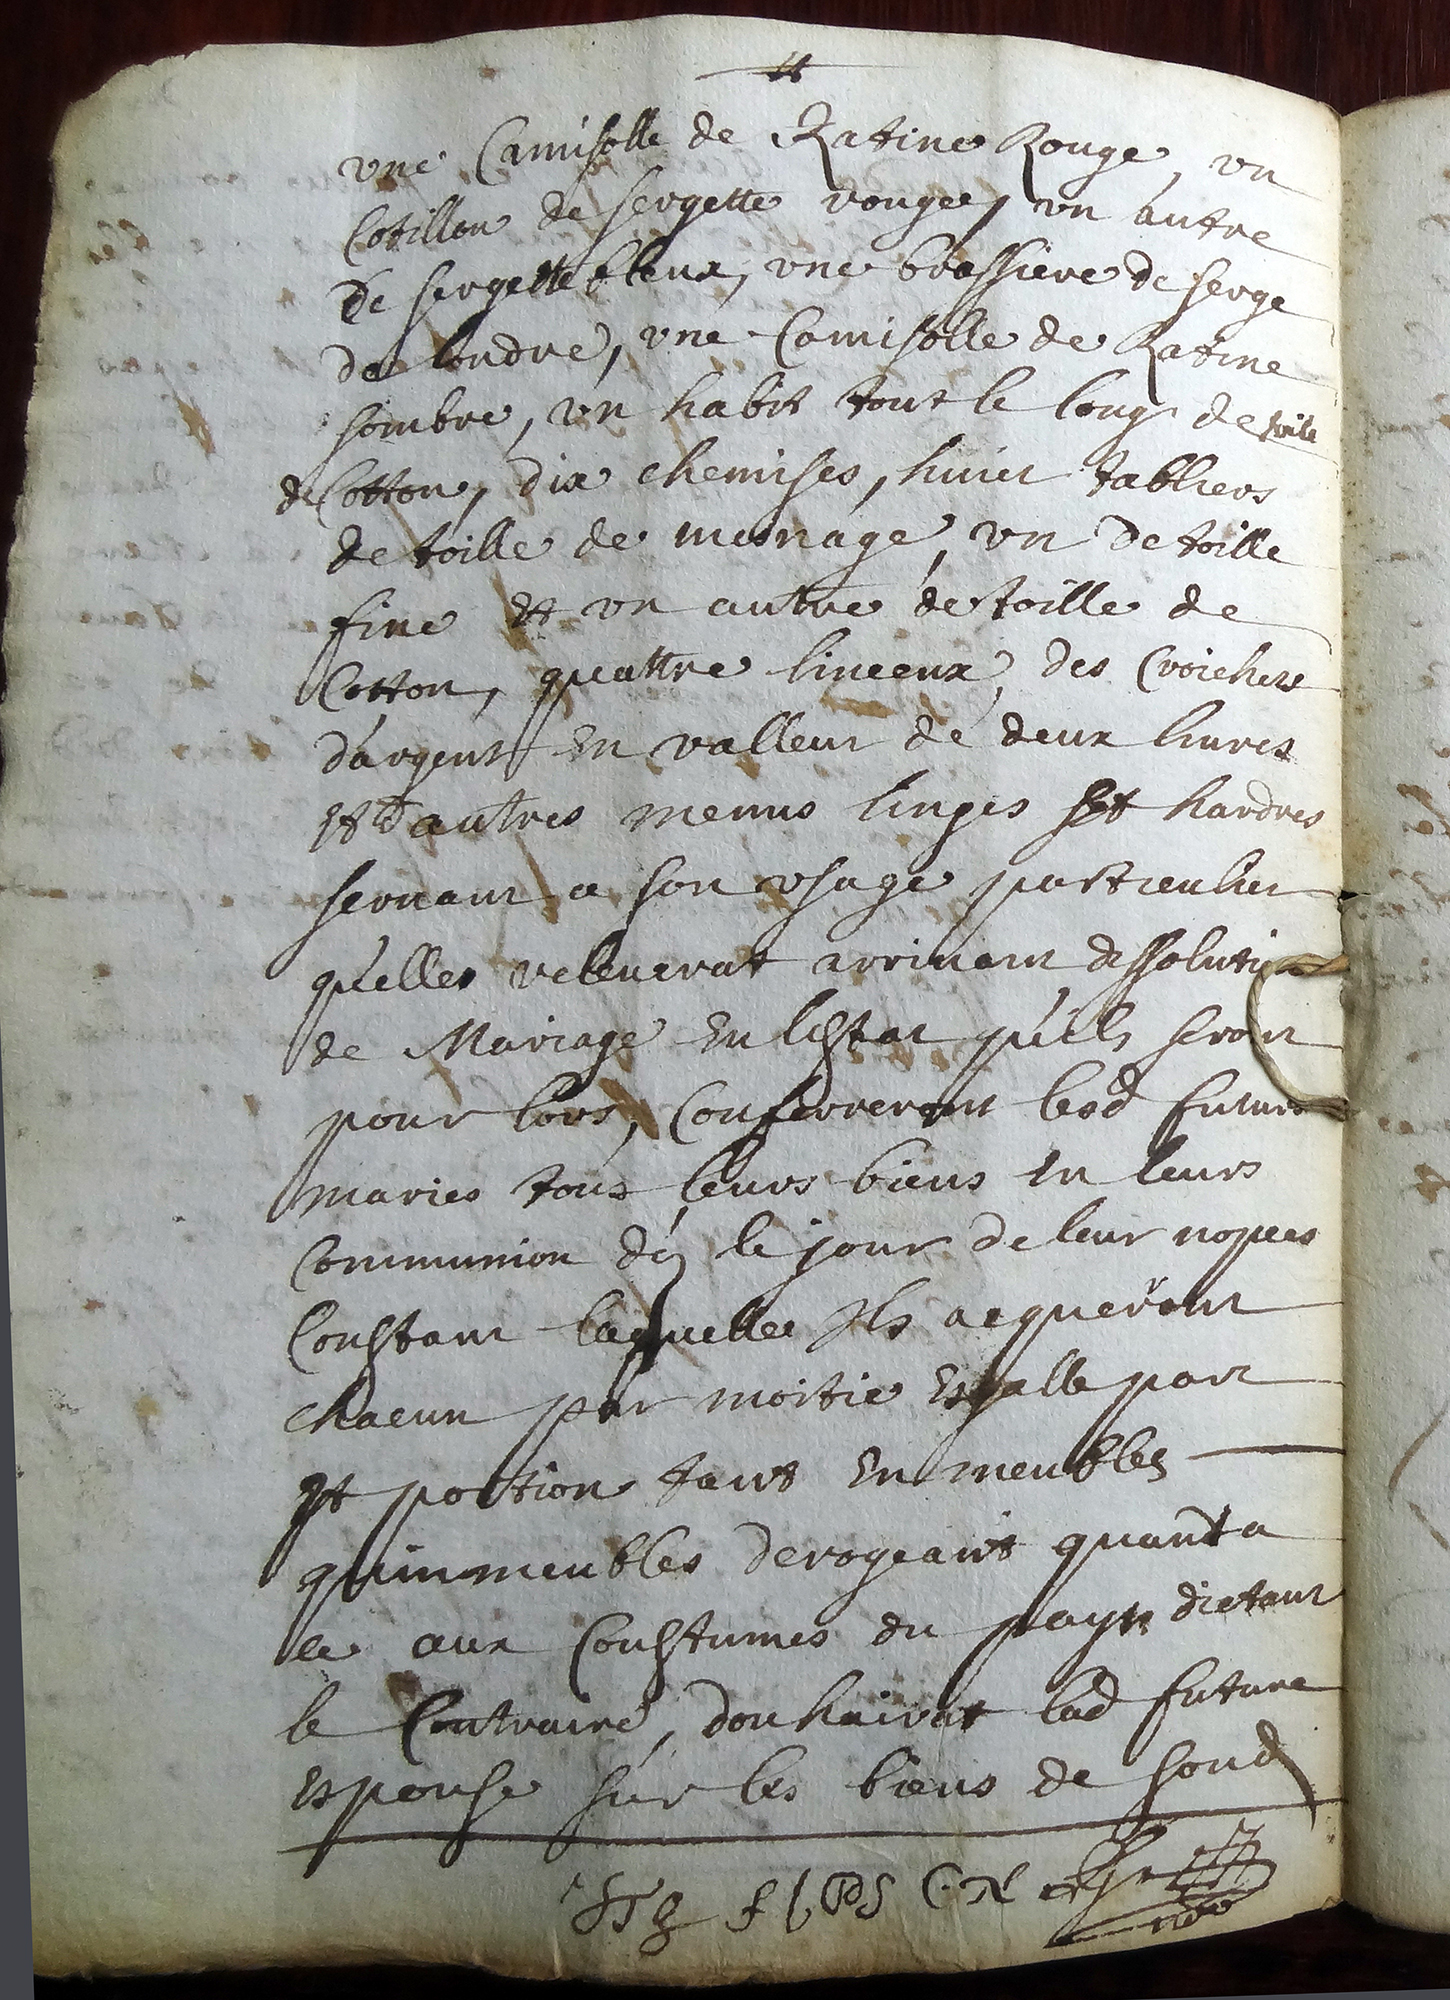 une Camisolle de Ratine Rouge, un
Cotillon de sergette rougee, un autre
de sergette bleux, une brassiere de serge
de londre, une Camisolle de Ratine
sombre, un habit tout le long de toile
de Cotton, dix chemises, huict tabliers
de toille de mesnage, un de toille
fine et un autre de toille de
Cotton, quattre linceux, des Croichets
d'argent en valleur de deux livres
et d'autres menus linges et hardres
servant a son usage particulier
qu'elles releverat arrivant dissolution
de Mariage en lestat qu'ils seront
pour lors, Confereront lesd futurs
maries tous leurs biens en leurs
Communion dez le jour de leur nopces
Constant laquelle Ils acqueront
chacun par moitie Esgalle part
et portion tant en meubles
qu'immeubles derogeants quant a
ce aux Coustumes du pays dictant
le Contraire, douhairat lad future
Espouse sur les biens de sond